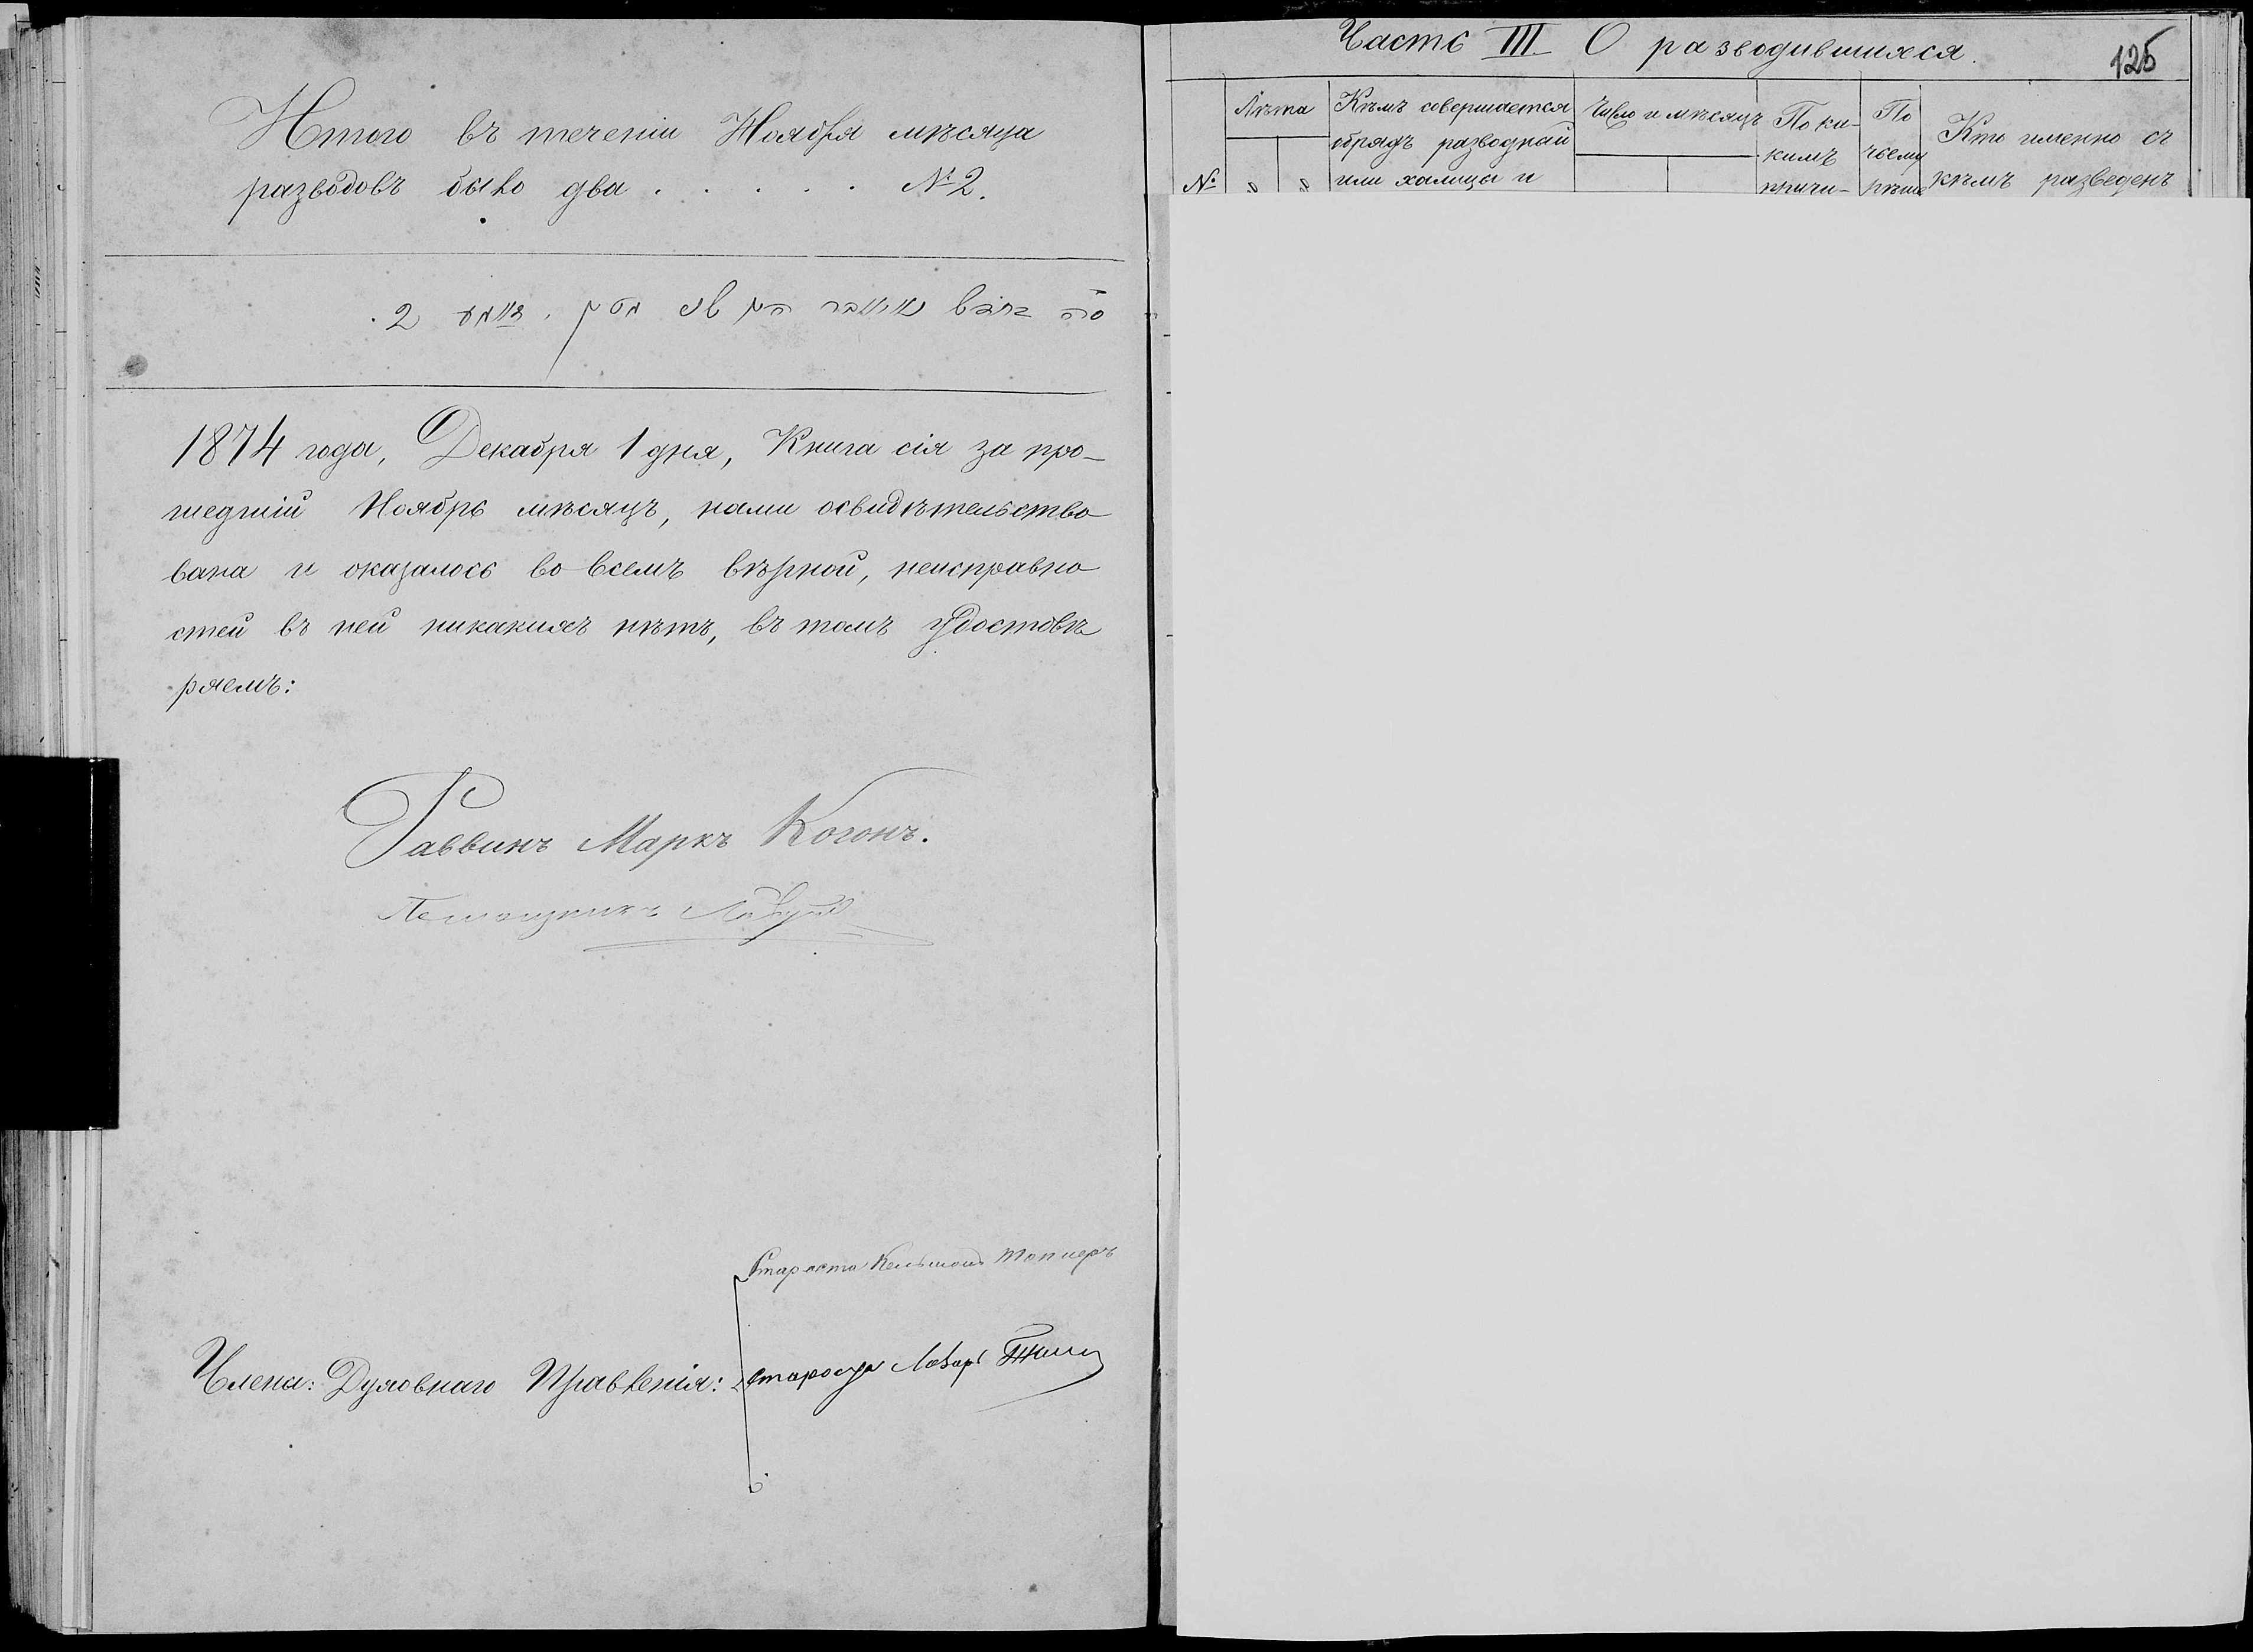 Итого въ теченіи Ноября мѣсяца
разводовъ было два . . . . . № 2.
2
1874 года, Декабря 1 дня, Книга сія за про-
шедшій Ноябрь мѣсяцъ, нами освидѣтельство
вана и оказалось во всемъ вѣрной, неисправно
стей въ ней никакихъ нѣтъ, въ томъ удостовѣ
ряемъ:
Раввинъ Маркъ Когонъ.
Помощникъ
Староста
Члена: Духовнаго Правленія:
Староста Лазарь
Часть III О разводившихся.
125
Лѣта
Кѣмъ совершается
обрядъ разводный
или халицы и
Число и мѣсяцъ
По ка-
кимъ
причи-
По
чьему
рѣше
Кто именно съ
кѣмъ разведенъ
№